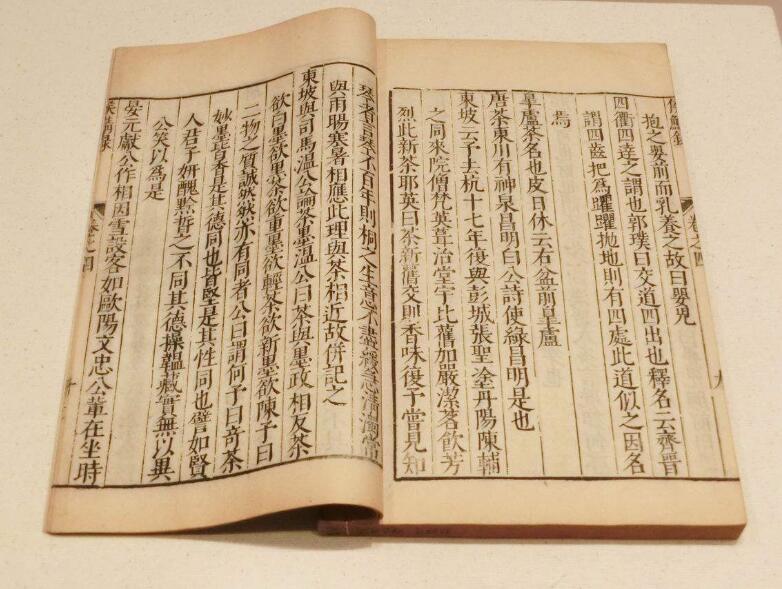 侯鯖錄 卷之四 九
抱之嬰前而乳養之故曰嬰兒
四衢四達之謂也郭璞曰交道四出也釋名云齊晉
謂四齒把爲躍躍拋地則有四處此道似之因名
焉
皐盧茶名也皮日休云右盆前皐盧
唐茶東川有神泉昌明白公詩使綠昌明是也
東坡云予去杭十七年復與彭城張聖塗丹陽陳輔
之同來院僧梵英葺治堂宇比舊加嚴潔茗飲芳
烈此新茶耶英曰茶新舊交則香味復予嘗見知
琴者言琴不百年則桐之生意不盡緩急清濁常
與雨暘寒暑相應此理與茶相近故併記之
東坡與司馬溫公論茶墨溫公曰茶與墨政相反茶
欲白墨欲黑茶欲重墨欲輕茶欲新墨欲陳予曰
二物之質誠然然亦有同者公曰謂何予曰奇茶
妙墨皆香是其德同也皆堅是其性同也譬如賢
人君子妍醜黔晳之不同其德操韞藏實無以異
公笑以爲是
晏元獻公作相因雪設客如歐陽文忠公輩在坐時
侯鯖錄 卷之四 十